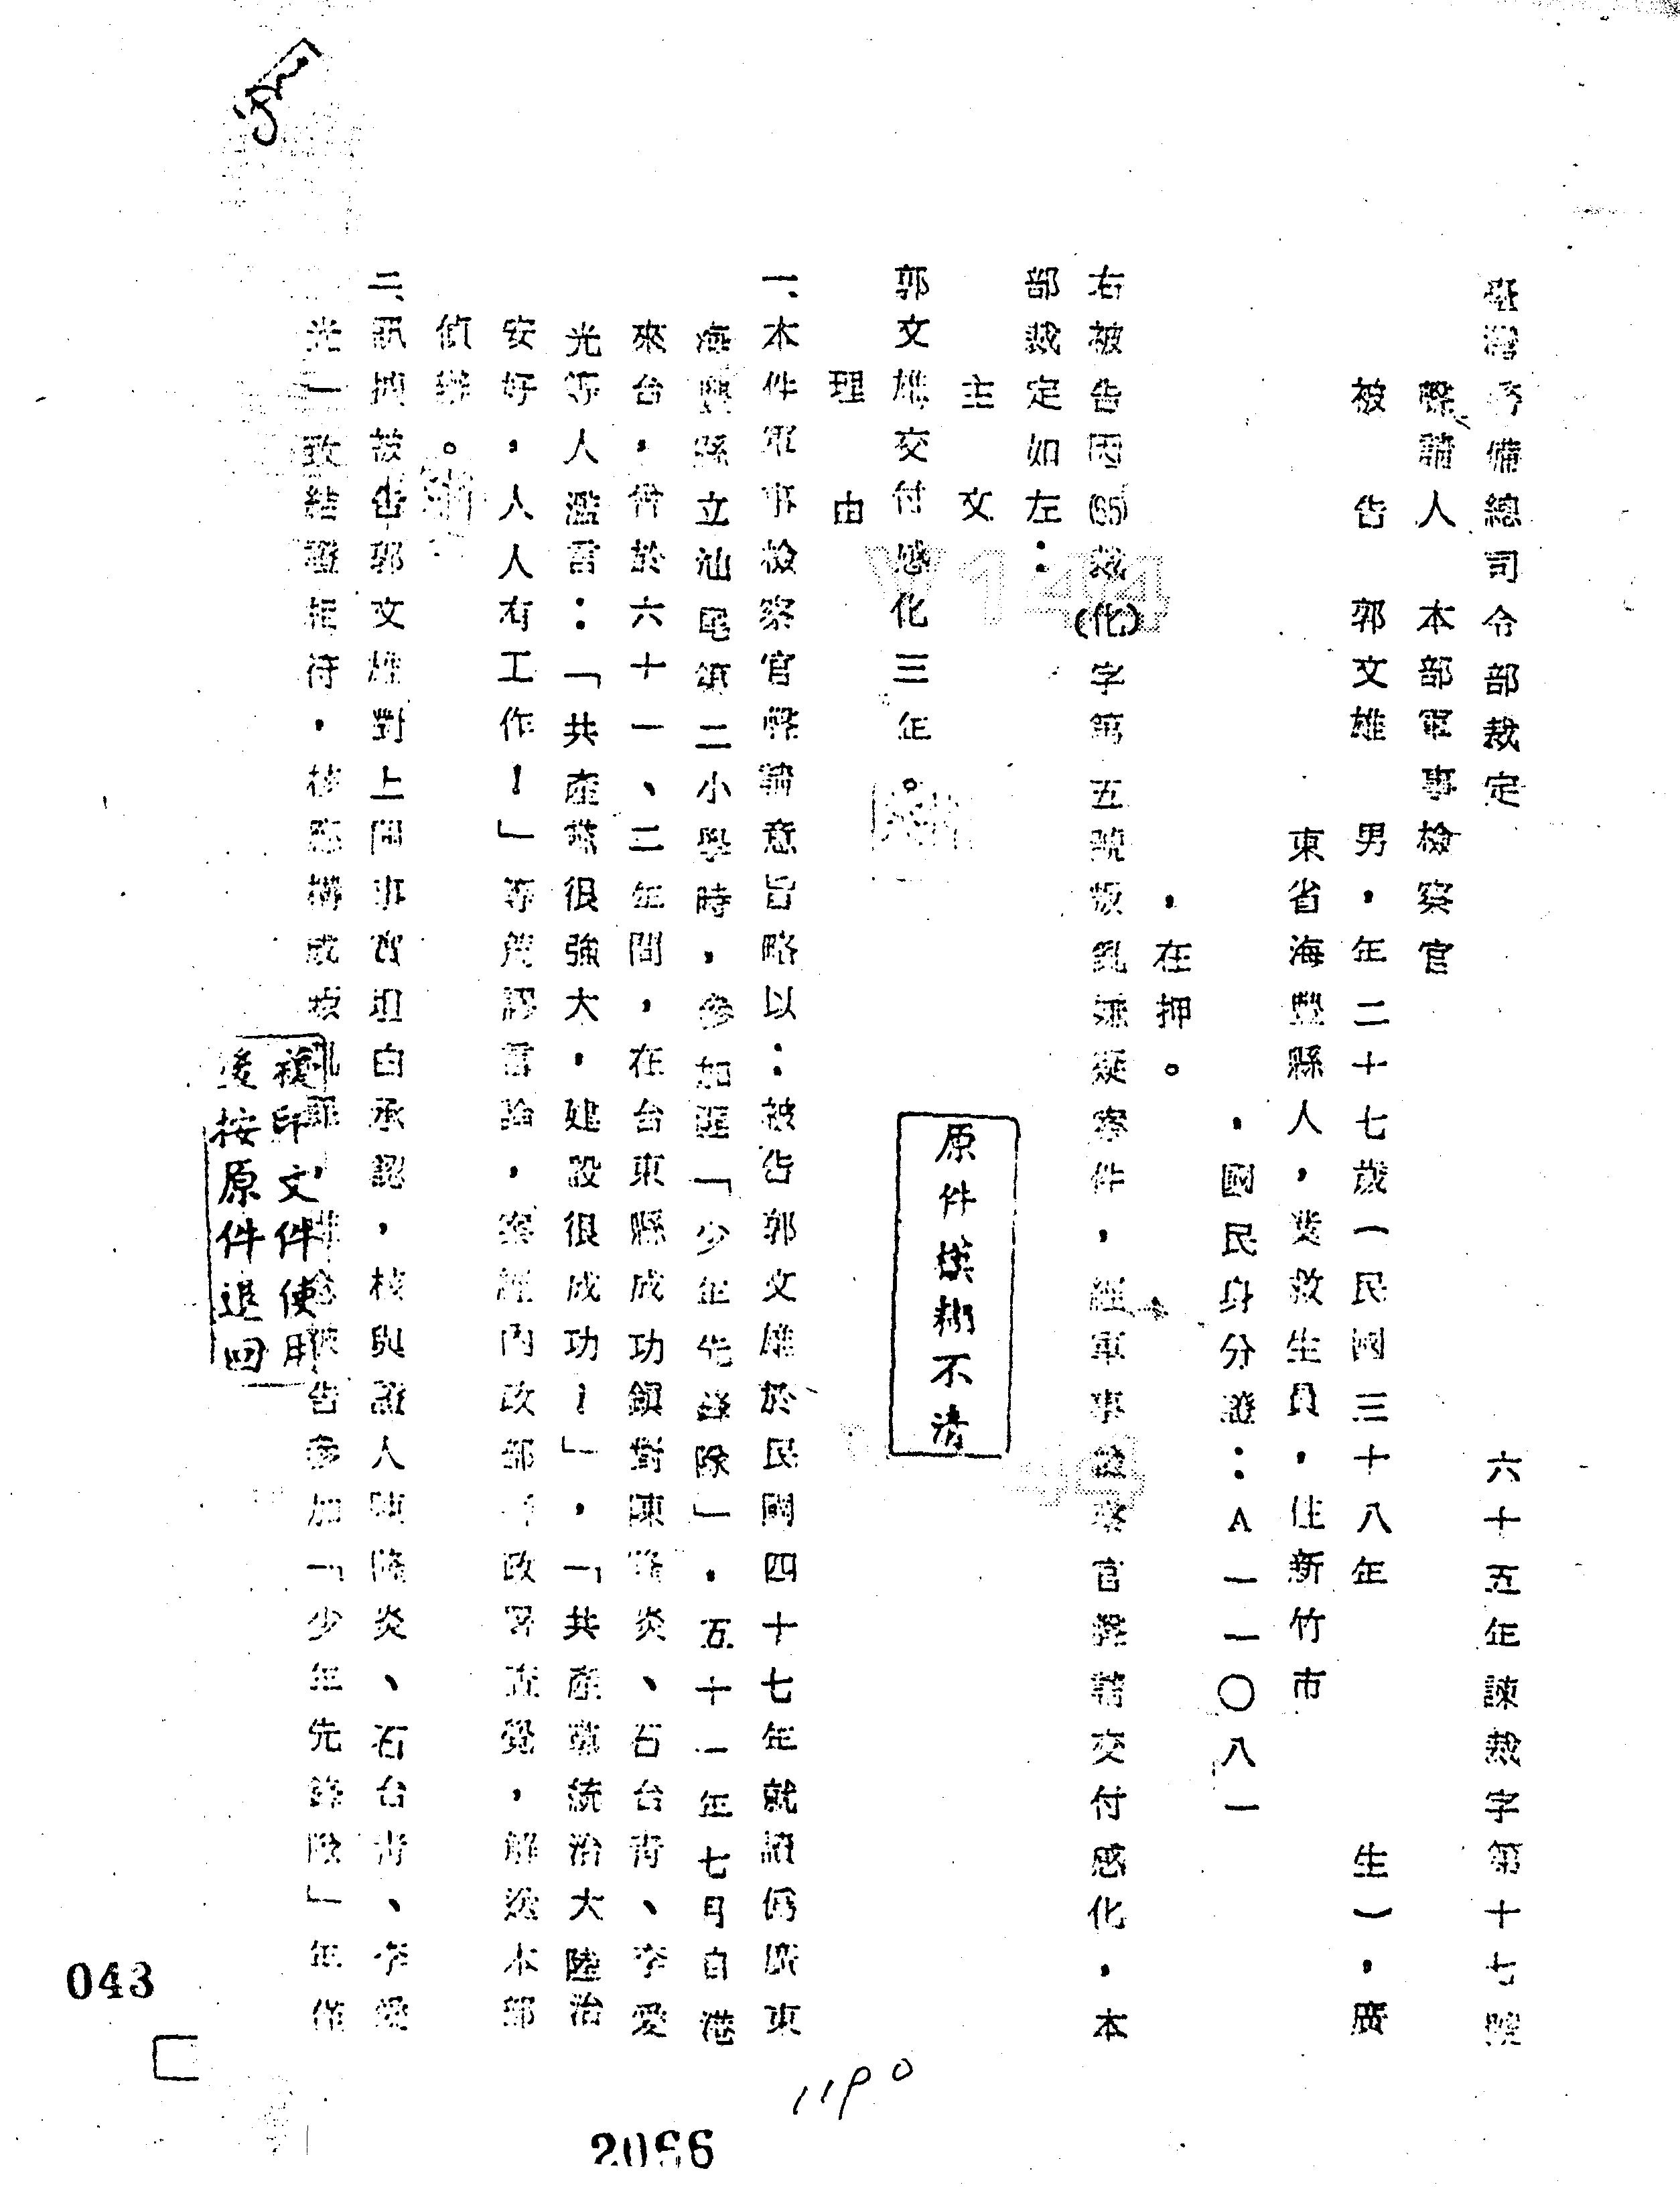 臺灣警備總司令部裁定
六十五年諫裁字第十七號
聲請人 本部軍事檢察官
被告 郭文雄 男，年二十七歲（民國三十八年 生），廣
東省海豐縣人，業救生員，住新竹市
，國民身分證：A一一〇八一
，在押。
右被告因(65)裁(化)字第五號叛亂嫌疑案件，經軍事檢察官聲請交付感化，本
部裁定如左：
主文
郭文雄交付感化三年。
理由
一、本件軍事檢察官聲請意旨略以：被告郭文雄於民國四十七年就讀偽廣東
海豐縣立汕尾第二小學時，參加匪「少年先鋒隊」，五十一年七月自港
來台，曾於六十一、二年間，在台東縣成功鎮對陳隆炎、石台青、李愛
光等人濫言：「共產黨很強大，建設很成功！」，「共產黨統治大陸治
安好，人人有工作！」等荒謬言論，案經內政部 政署查覺，解送本部
偵辦。
二、訊據被告郭文雄對上開事實坦白承認，核與證人陳隆炎、石台青、李愛
光一致結證相符，核應構成叛亂罪 告參加「少年先鋒隊」年僅
原件模糊不清
複印文件使用
後按原件退回
V144
44
043
1190
2066